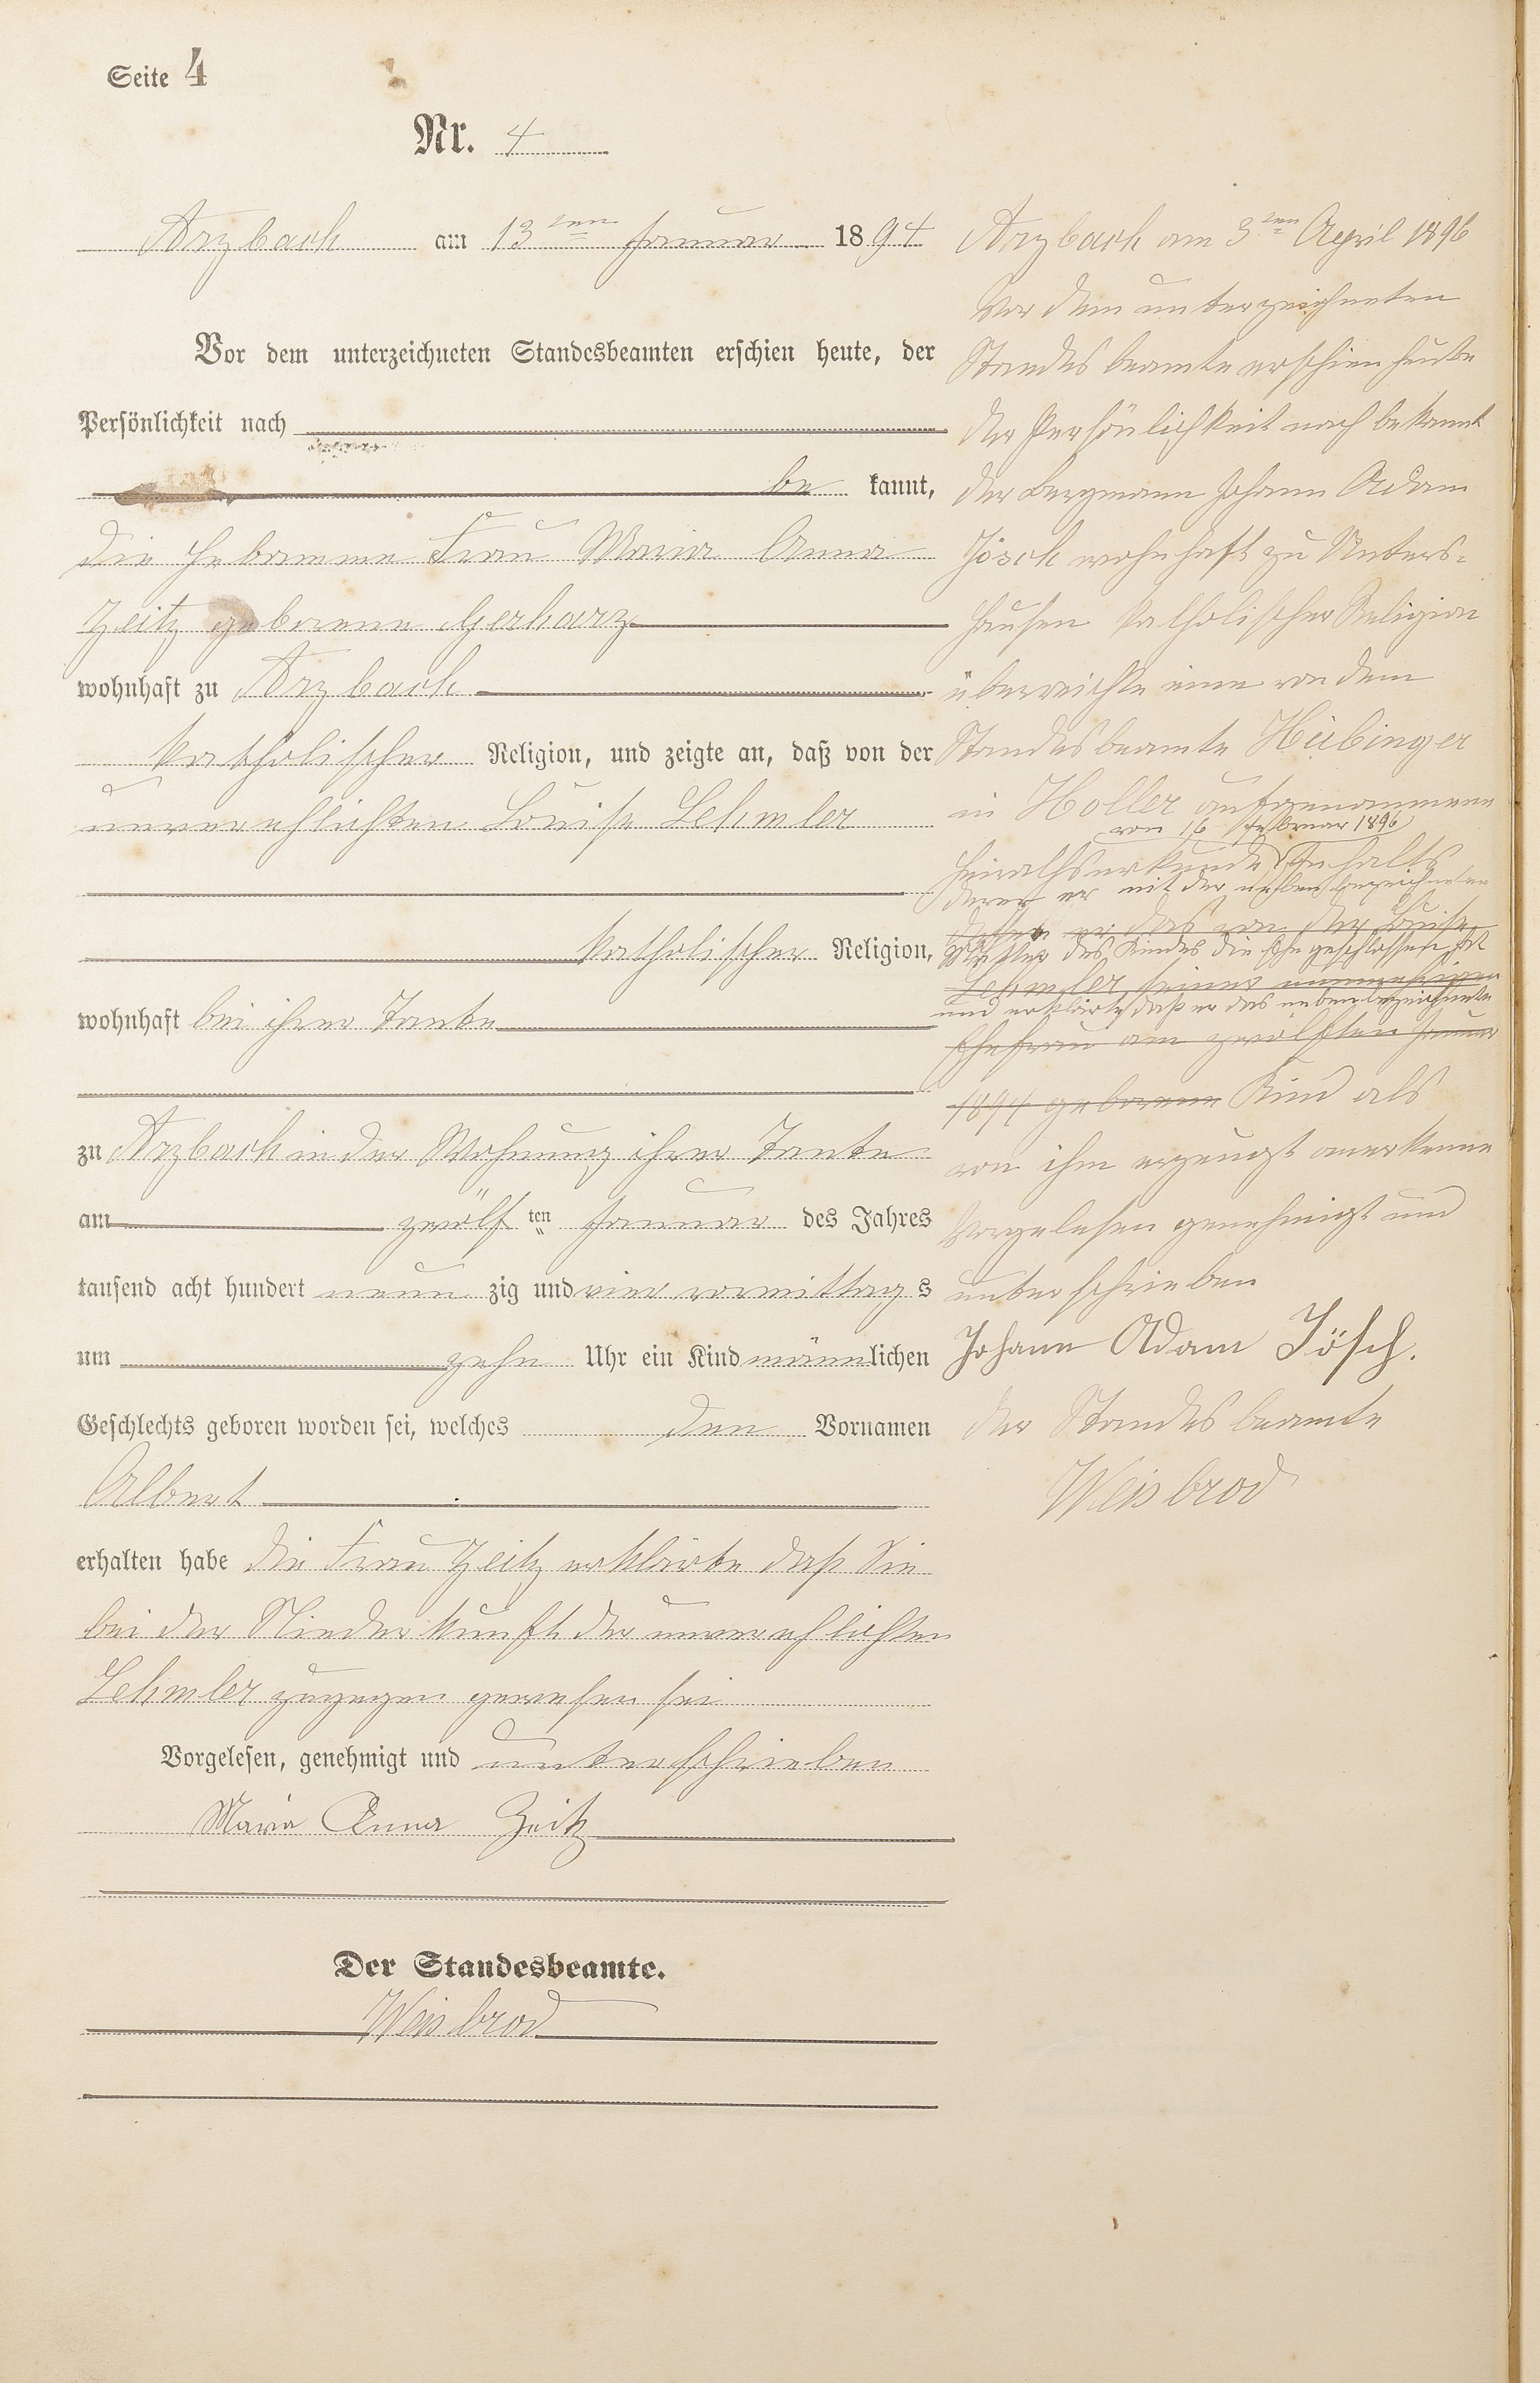 Seite 4
Nr. 4
Arzbach am 13ten Januar 1894
Vor dem unterzeichneten Standesbeamten erschien heute, der
Persönlichkeit nach
be kannt,
die Hebamme Frau Maria Anna
Zeitz geborene Gerharz
wohnhaft zu Arzbach
katholischer Religion, und zeigte an, daß von der
unverehlichten Louise Lehmler
katholischer Religion,
wohnhaft bei ihrer Tante
zu Arzbach in der Wohnung ihrer Tante
am zwölf ten Januar des Jahres
tausend acht hundert neun zig und vier vormittag s
um zehn Uhr ein Kind männlichen
Geschlechts geboren worden sei, welches den Vornamen
Albert
erhalten habe die Frau Zeitz erklärte daß Sie
bei der Niederkunft der unverehlichten
Lehmler zugegen gewesen sei
Vorgelesen, genehmigt und unterschrieben
Maria Anna Zeitz
Der Standesbeamte.
Weisbrod
Arzbach am 3ten April 1896
Vor dem unterzeichneten
Standesbeamte erschien heute
der Persönlichkeit nach bekannt
der Bergmann Johann Adam
Jösch wohnhaft zu Unters-
hausen katholischer Religion
überreichte eine von dem
Standesbeamte Hübinger
in Holler aufgenommene
vom 16 Februar 1896
Heirathsurkunde Inhalts
deren er mit der nebenbezeichneten
das von der Louise
Mutter des Kindes die Ehe geschlossen hat
Lehmler seiner nunmehrigen
und erklärte, daß er das nebenbezeichnete
Ehefrau am zwölften Januar
1894 geborene Kind als
von ihm erzeugt anerkenne
Vorgelesen genehmigt und
unterschrieben
Johann Adam Jösch.
der Standesbeamte
Weisbrod